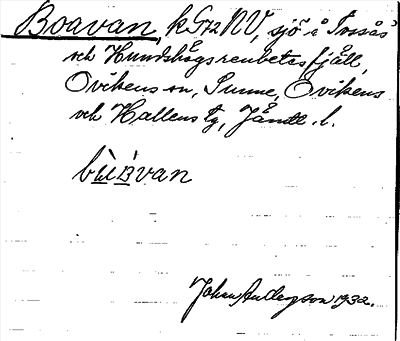 Boavan, k 572 NV, sjö i Tossås
och Hundshögsrenbetesfjäll,
Ovikens sn, Sunne, Ovikens
och Hallens tg, Jämtl. l.
Johan Anderson 1932.